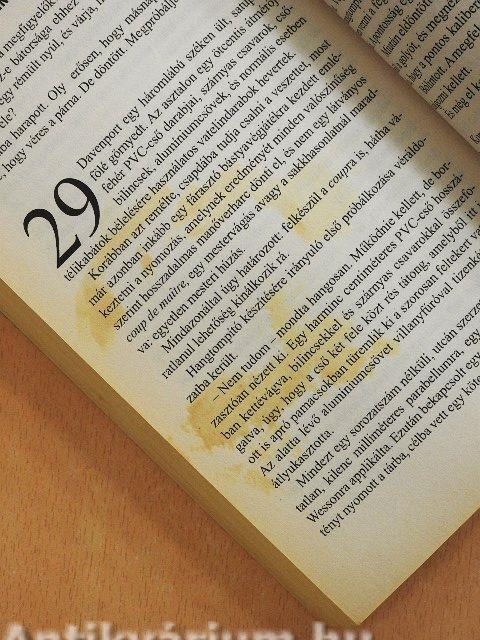 a megfigyeltek
z-e bátorsága ehhez
egy rémült nyúl, és várja,
le"
ba harapott. Oly erősen, hogy másna
, hogy véres a párna. De döntött. Megpróbálj
29
Davenport egy háromlábú széken ült,
fölé görnyedt. Az asztalon egy ötcentis átmérőj
fekér PVC-cső darabjai, szárnyas csavarok, cső-
bilincsek, alumíniumcsövek, és normális esetben
télikabátok bélelésére használatos vatelindarabok hevertek.
Korábban azt remélte, csapdába tudja csalni a veszettet, most
már azonban inkább egy fárasztó básyavégjátékra kezdett emlé-
keztetni a nyomozás, amelynek eredményét minden valószínűség
szerint hosszadalmas manőverharc dönti el, és nem egy látványos
coup de maître, egy mestervágás avagy a sakkhasonlatnál marad-
va: egyetlen mesteri húzás.
Mindazonáltal úgy határozott: felkészül a coupra is, hátha vá-
ratlanul lehetőség kínálkozik rá.
Hangtompító készítésére irányuló első próbálkozása véraldo-
zatba került.
– Nem tudom – mondta hangosan. Működnie kellett, de bor-
zasztóan nézett ki. Egy harminc centiméteres PVC-cső hosszá-
ban kettévágva, bilincsekkel és szárnyas csavarokkal összefo-
gatva, úgy, hogy a cső két fele közt rés tátong, amelyből itt
ott is apró pamacsokban türemlik ki a szorosan feltekert
Az alatta lévő alumíniumcsövet villanyfúróval tizenk
átlyukasztotta.
Mindezt egy sorozatszám nélküli, utcán szerze
tatlan, kilenc milliméteres parabellumra, egy
Wessonra applikálta. Ezután bekapcsolt egy
tényt nyomott a tárba, célba vett egy köte
Antikvárium.hu